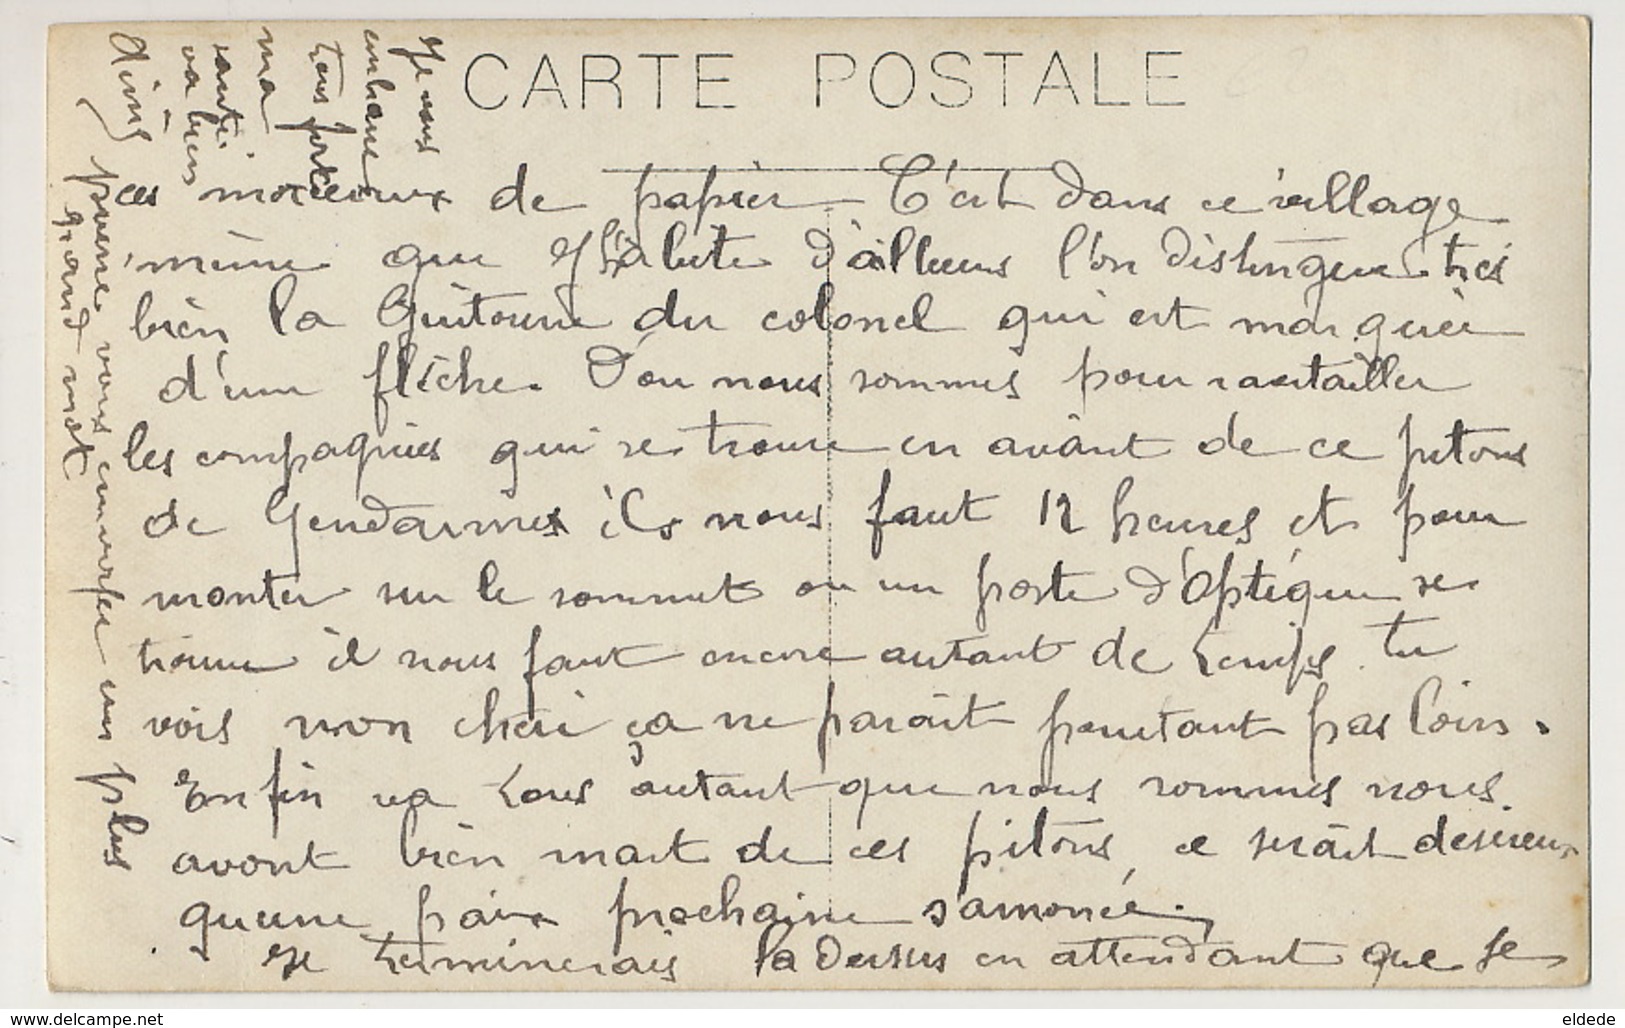 CARTE POSTALE
ces morceaux de papier C'est dans ce village
même que J'habite d'ailleurs l'on distingue tres
bien la Guitoune du colonel qui est marquée
d'une flèche. D'ou nous sommes pour ravitailler
les compagnies qui se trouve en avant de ce pitons
de Gendarmes ils nous faut 12 heures et pour
monter sur le sommet ou un poste d'Optique se
trouve il nous faut encore autant de temps. tu
vois mon cheri ça ne parait pourtant pas loin.
Enfin va tous autant que nous sommes nous
avont bien mart de ces pitons ce serait desireux
qu'une paix prochaine s'amonce.
Je terminerais la dessus en attendant que je
puene vous converser un plus
grand mot
Je vous
embrasse
tous fort
ma
santé
va bien
Aimé
eldede